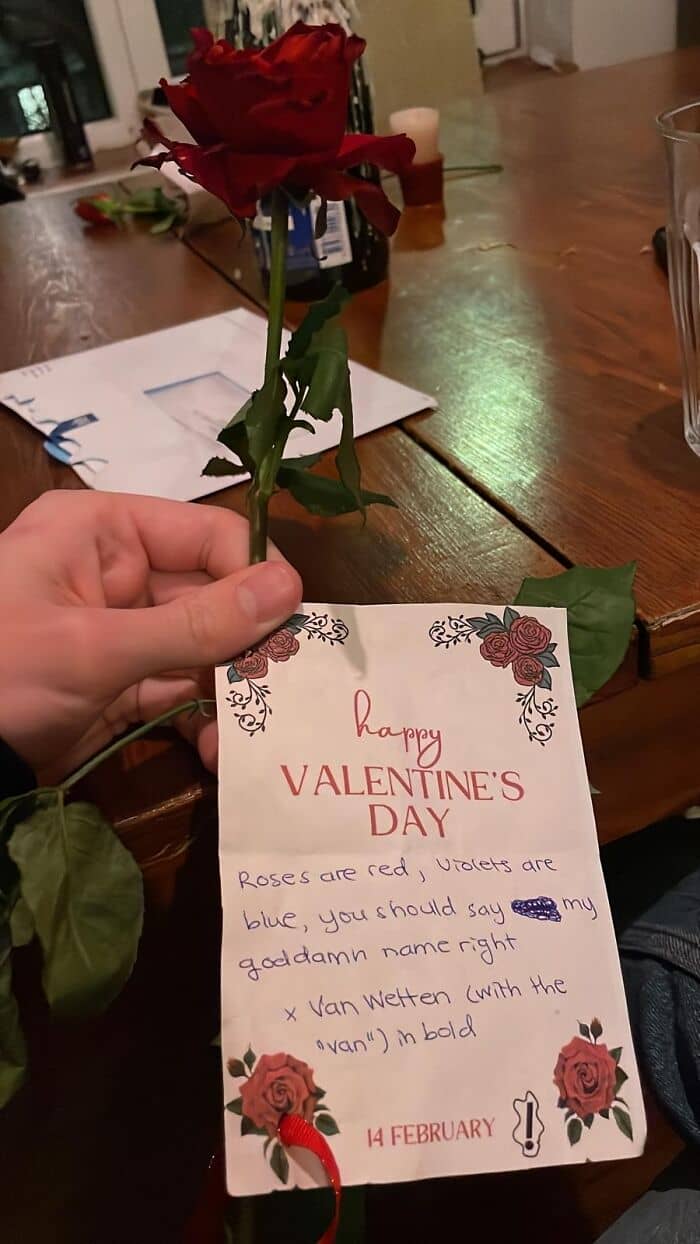 happy
VALENTINE'S
DAY
Roses are red, violets are
blue, you should say my
goddamn name right
x Van Wetten (with the
"van") in bold
14 FEBRUARY
!